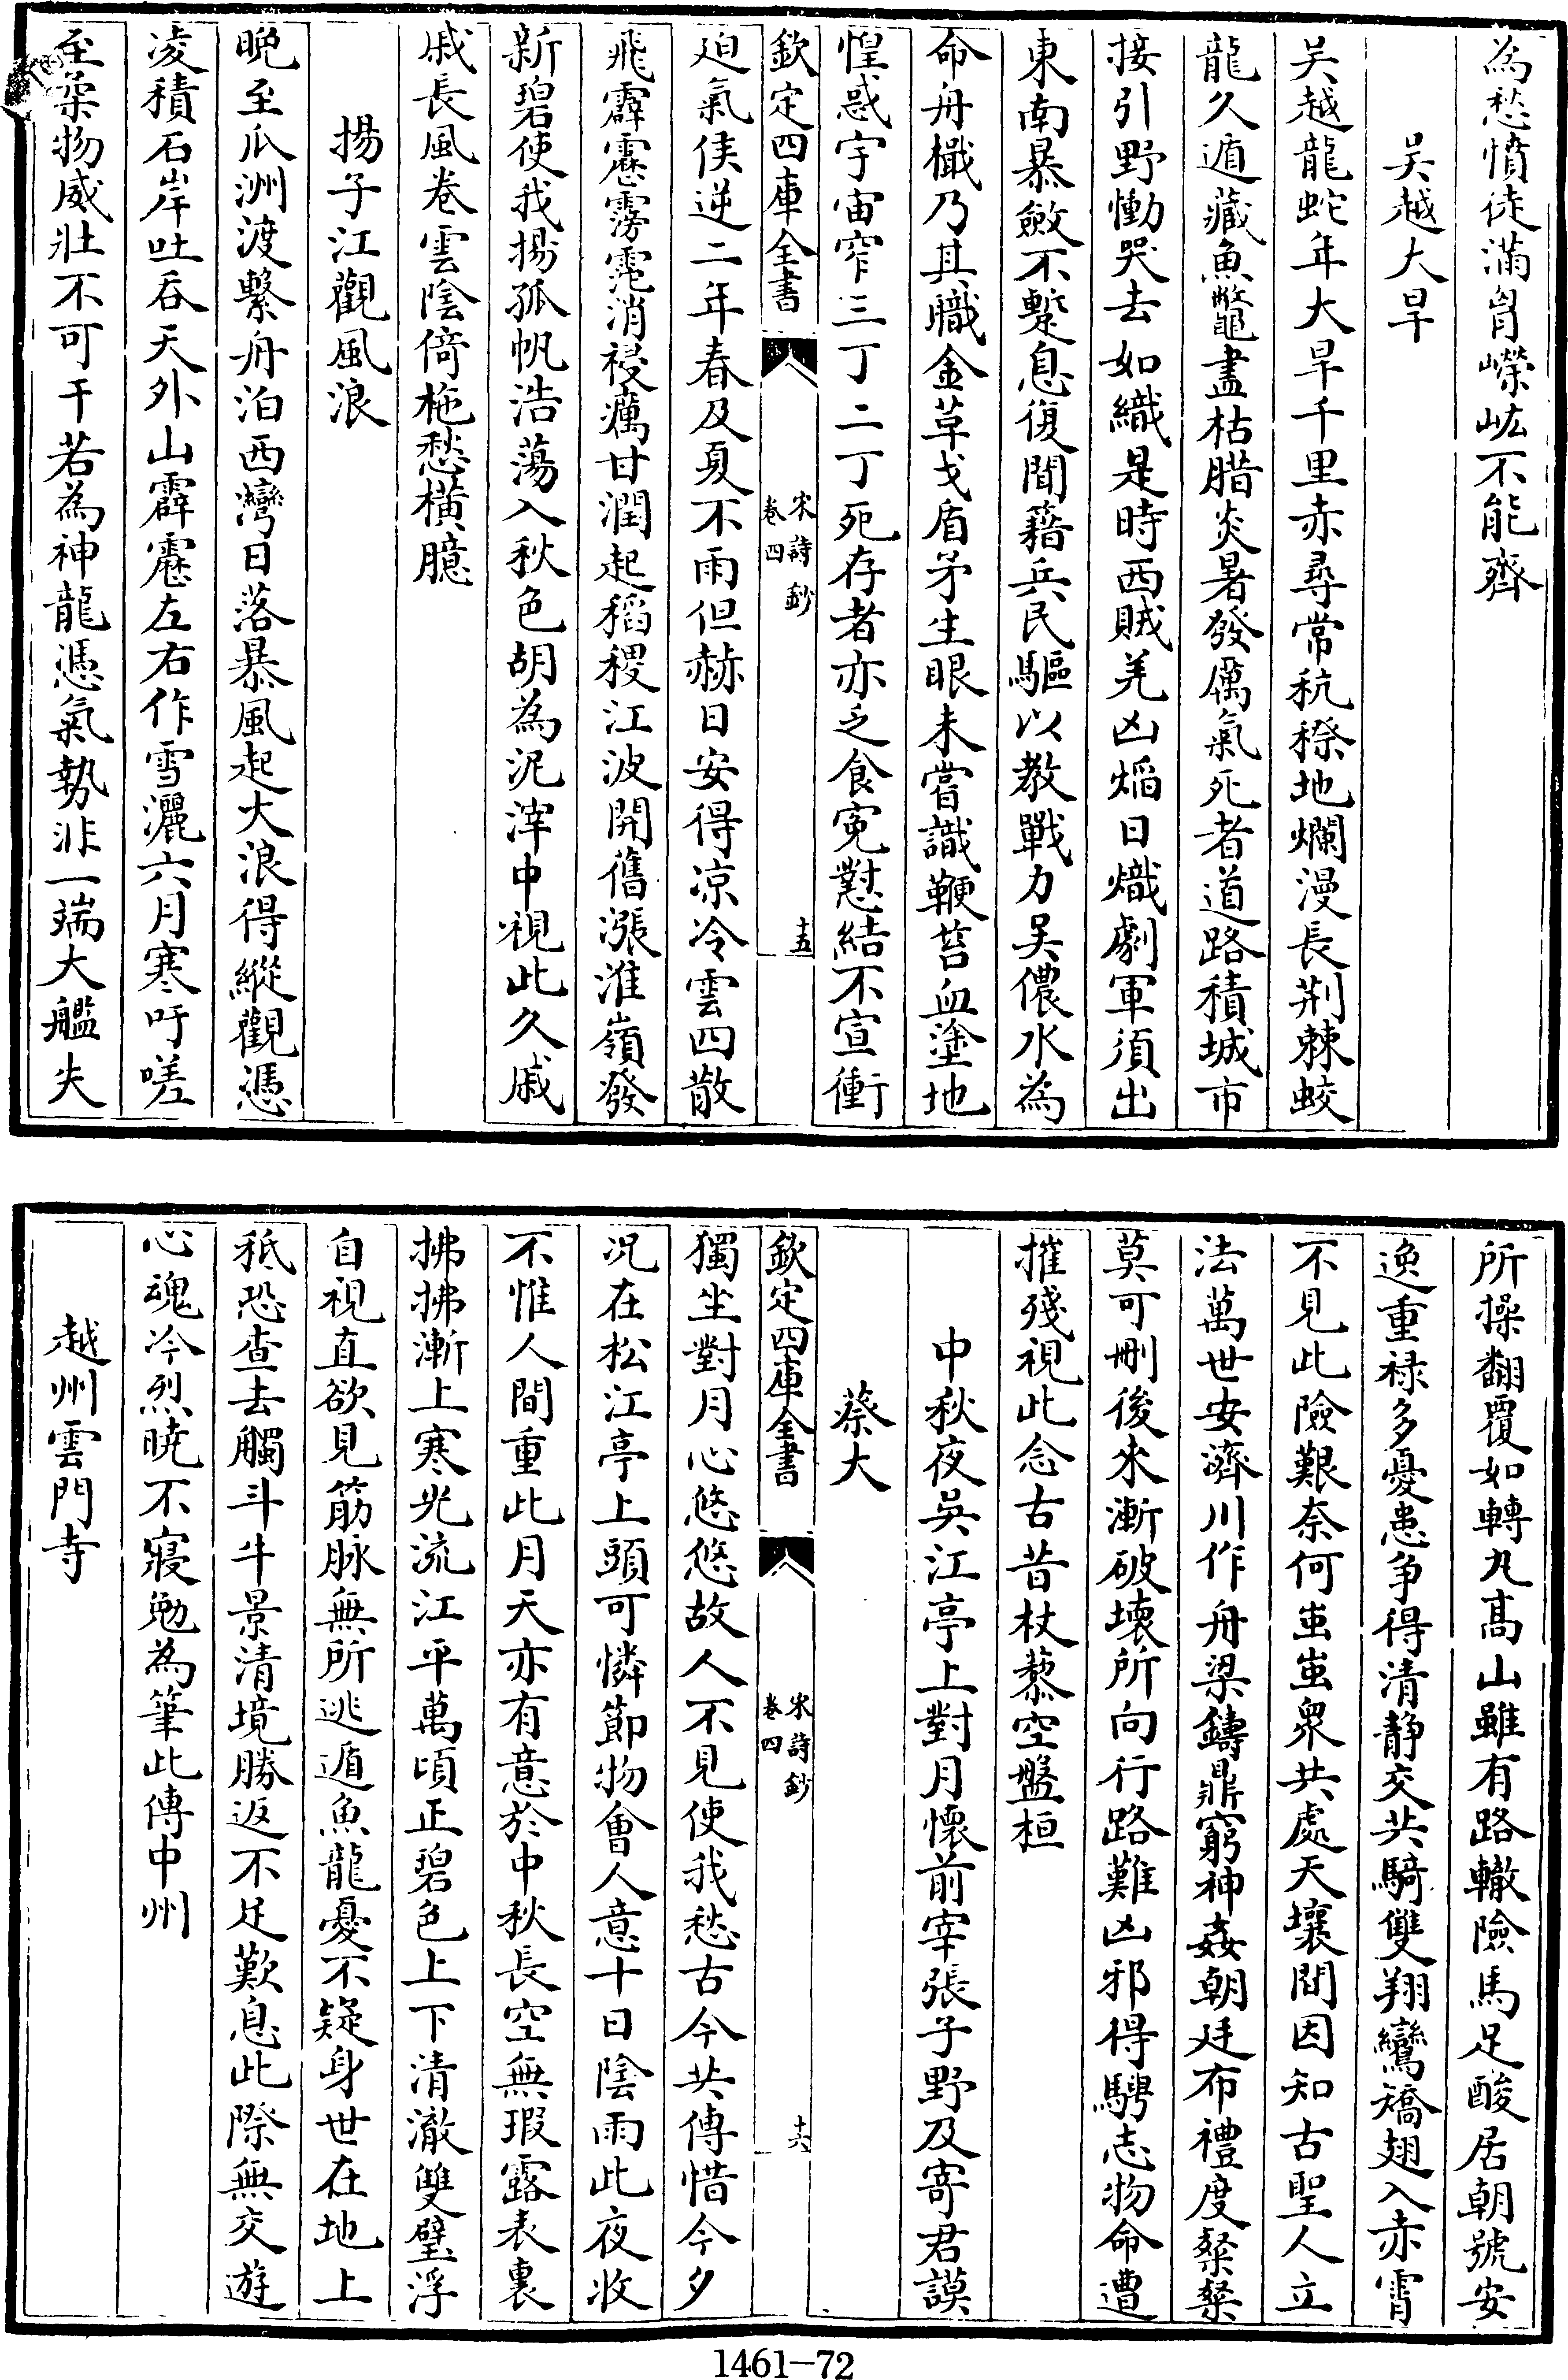 為愁憤徒滿胷嶸㟏不能齊
吴越大旱
吴越龍蛇年大旱千里赤尋常秔穄地爛漫長荆棘蛟
龍久遁藏魚鼈盡枯腊炎暑發厲氣死者道路積城市
接引野慟哭去如織是時西賊羌凶焰日熾劇軍須出
東南暴斂不蹔息復聞籍兵民驅以教戰力吴儂水為
命舟檝乃其職金革戈盾矛生眼未嘗識鞭笞血塗地
惶惑宇宙窄三丁二丁死存者亦乏食寃懟結不宣衝
欽定四庫全書
宋詩鈔
卷四
十五
廹氣候逆二年春及夏不雨但赫日安得凉冷雲四散
飛霹靂霶霓消祲癘甘潤起稻稷江波開舊漲淮嶺發
新碧使我揚孤帆浩蕩入秋色胡為泥滓中視此久戚
戚長風卷雲陰倚柂愁橫臆
揚子江觀風浪
晚至瓜洲渡繫舟泊西灣日落暴風起大浪得縱觀憑
凌積石岸吐吞天外山霹靂左右作雪灑六月寒吁嗟
至柔物威壯不可干若為神龍憑氣勢非一端大艦失
所操翻覆如轉丸高山雖有路轍險馬足酸居朝號安
逸重祿多憂患争得清静交共騎雙翔鸞矯翅入赤霄
不見此險艱奈何蚩蚩衆共處天壤間因知古聖人立
法萬世安濟川作舟梁鑄鼎窮神姦朝廷布禮度粲粲
莫可刪後來漸破壞所向行路難凶邪得騁志物命遭
摧殘視此念古昔杖藜空盤桓
中秋夜吳江亭上對月懷前宰張子野及寄君謨
蔡大
欽定四庫全書
宋詩鈔
卷四
十六
獨坐對月心悠悠故人不見使我愁古今共傳惜今夕
况在松江亭上頭可憐節物會人意十日陰雨此夜收
不惟人間重此月天亦有意於中秋長空無瑕露表裏
拂拂漸上寒光流江平萬頃正碧色上下清澈雙璧浮
自視直欲見筋脉無所逃遁魚龍憂不疑身世在地上
秪恐查去觸斗牛景清境勝返不足歎息此際無交遊
心魂冷烈曉不寢勉為筆此傳中州
越州雲門寺
1461—72